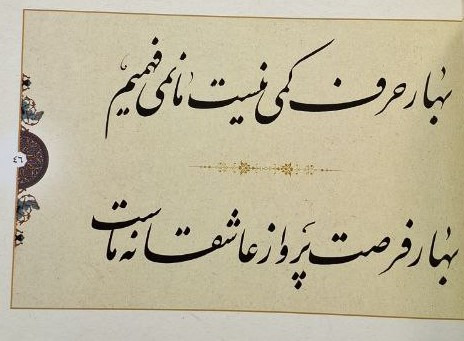 بهار حرف کمی نیست ما نمی فهمیم
٤٦
بهار فرصت پرواز عاشقانه ماست